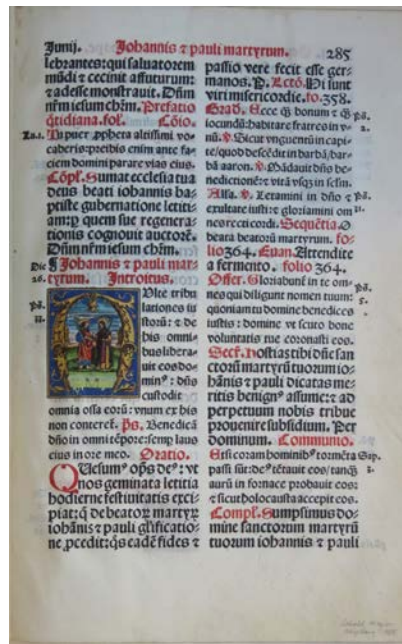 Junij.
Johannis ⁊ pauli martyrum.
285
lebrantes: qui saluatorem
mūdi ⁊ cecinit affuturum:
⁊ adesse monstrauit. Dn̄m
nr̄m iesum chr̄m. Prefatio
q̄tidiana. fol. Cōio.
Tu puer ꝓpheta altissimi vo-
caberis: preibis enim ante fa-
ciem domini parare vias eius.
Cōpl. Sumat ecclesia tua
deus beati iohannis ba-
ptiste gubernatione letiti-
am: ꝑ quem sue regenera-
tionis cognouit auctorē.
Dn̄m nr̄m iesum chr̄m.
Die 26.
¶ Johannis ⁊ pauli mar-
tyrum. Introitus.
Ulte tribu
lationes iu
storū: ⁊ de
his omni-
bus libera-
uit eos do-
minꝰ: dn̄s
custodit
omnia ossa eorū: vnum ex his
non conteret. ps. Benedicā
dn̄o in omni tēpore: semp laus
eius in ore meo. Oratio.
Quesumꝰ om̄ps deꝰ: vt
nos geminata letitia
hodierne festiuitatis exci-
piat: q̄ de beatoꝝ martyꝝ
iohānis ⁊ pauli gl̄ificatio-
ne ꝓcedit: q̄s eadē fides ⁊
passio vere fecit esse ger-
manos. P. Lectō. Hi sunt
viri misericordie. fo. 358.
Grad. Ecce q̄ bonum ⁊ q̄
iocundū: habitare fratres in v-
nū. ℣. Sicut vnguentū in capi-
te: quod descēdit in barbā, bar-
bā aaron. ℣. Mādauit dn̄s be-
nedictionē: ⁊ vitā vsqꝫ in secl̄m.
Alla. ℣. Letamini in dn̄o ⁊
exultate iusti: ⁊ gloriamini om
nes recti cordi. Sequētia. O
beata beatorū martyrum. fo-
lio 364. Euan. Attendite
a fermento. folio 364.
Offer. Gloriabūt in te om-
nes qui diligunt nomen tuum:
quoniam tu domine benedices
iustis: domine vt scuto bone
voluntatis tue coronasti eos.
Secr̄. Hostias tibi dn̄e san
ctorū martyrū tuorum io-
hānis ⁊ pauli dicatas me-
ritis benignꝰ assume: ⁊ ad
perpetuum nobis tribue
prouenire subsidium. Per
dominum. Communio.
Et si coram hominibꝰ tormēta
passi sūt: deꝰ tētauit eos: tanqꝫ
aurū in fornace probauit eos:
⁊ sicut holocausta accepit eos.
Compl. Sumpsimus do-
mine sanctorum martyrū
tuorum iohannis ⁊ pauli